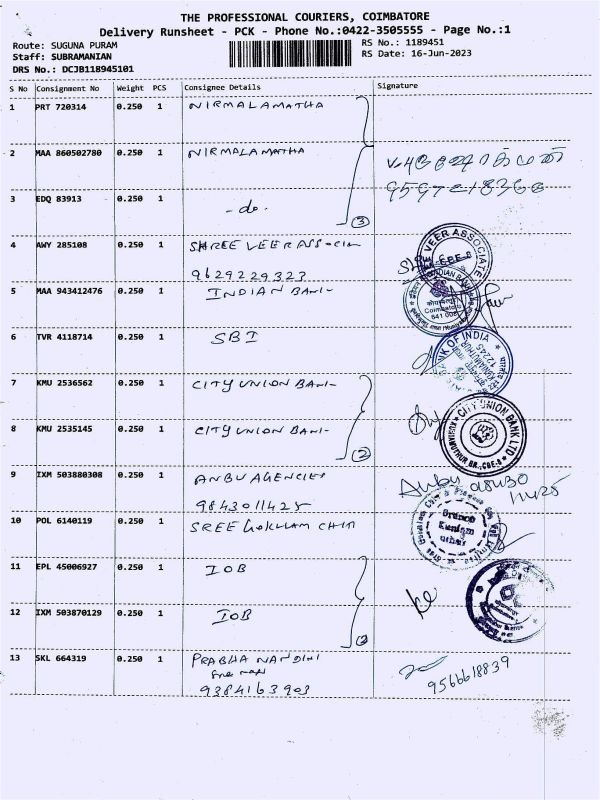 THE PROFESSIONAL COURIERS, COIMBATORE
Delivery Runsheet - PCK - Phone No.:0422-3505555 - Page No.:1
Route: SUGUNA PURAM
RS No.: 1189451
Staff: SUBRAMANIAN
RS Date: 16-Jun-2023
DRS No.: DCJB118945101
S No Consignment No Weight PCS Consignee Details Signature
1 PRT 720314 0.250 1 NIRMALAMATHA
2 MAA 860502780 0.250 1 NIRMALAMATHA
3 EDQ 83913 0.250 1 -do-
3
4 AWY 285108 0.250 1 SHREE VEER
9629229323
VEER ASSOCIATE
CBE-8
5 MAA 943412476 0.250 1 INDIAN BANK
INDIAN BANK
Coimbatore
641 008
6 TVR 4118714 0.250 1 SBI
BANK OF INDIA
12245
7 KMU 2536562 0.250 1 CITY UNION BANK
8 KMU 2535145 0.250 1 CITY UNION BANK
2
CITY UNION BANK LTD
BR., CBE-8
9 IXM 503880308 0.250 1 ANBU AGENCIES
9843011425
Anbu
11425
10 POL 6140119 0.250 1 SREE GOKULAM CHIT
Branch
11 EPL 45006927 0.250 1 IOB
12 IXM 503870129 0.250 1 IOB
13 SKL 664319 0.250 1 PRABHA NANDINI
9384163903
9566618839